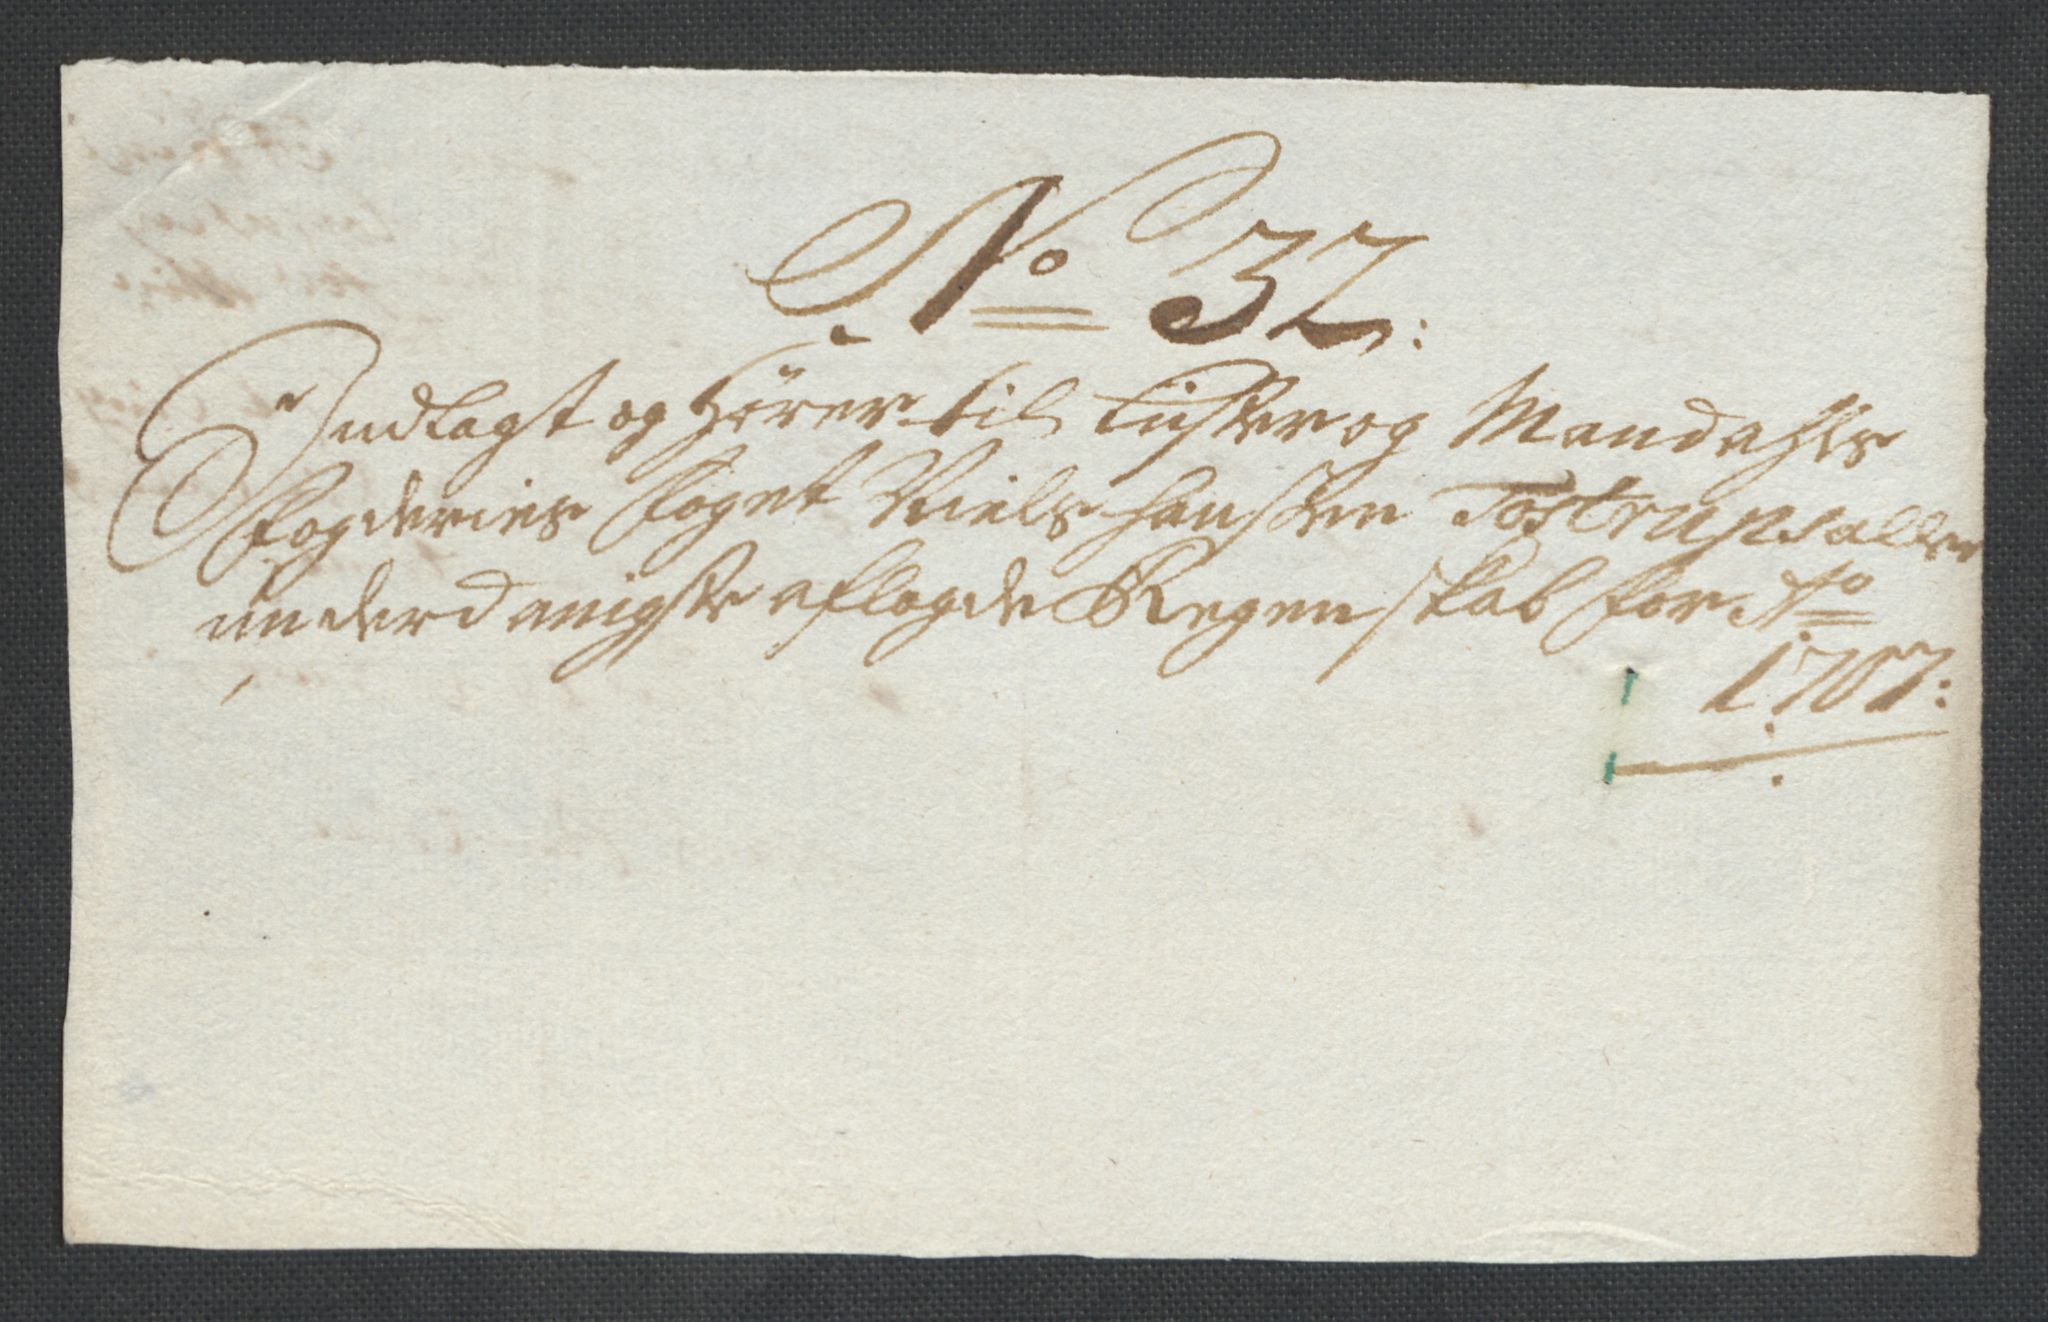 No 32:
Indlagt og Hörer til Lister og Mandahls
Fogderies Foget Niels Hanssen Tostrups aller
underdanigste aflagde Regenskab for Ao
1707: